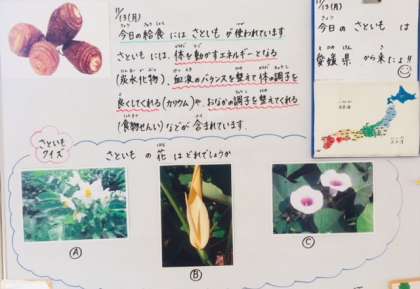 11/13(月)
今日の給食にはさといもが使われています
さといもには、体を動かすエネルギーとなる
(炭水化物)、血液のバランスを整えて体の調子を
良くしてくれる(カリウム)や、おなかの調子を整えてくれる
(食物せんい)などが含まれています
11/13(月)
今日のさといもは
愛媛県から来たよ!!
さといも
クイズ
さといもの花はどれでしょうか
A
B
C